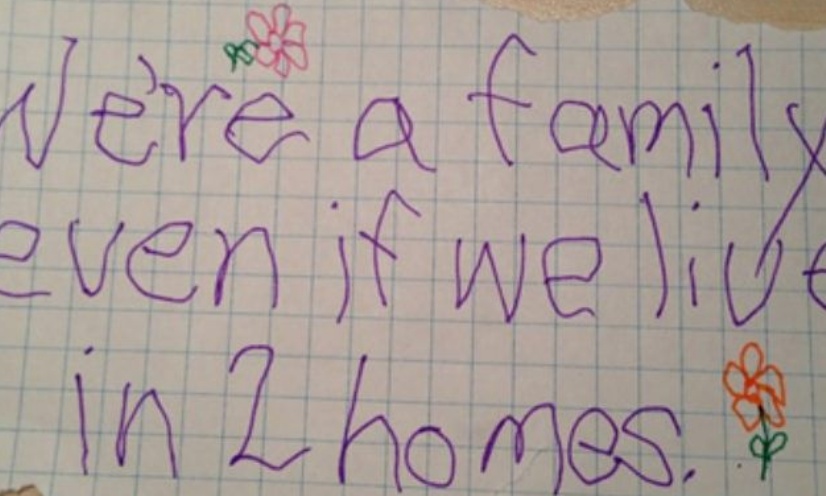 We're a family
even if we live
in 2 homes.